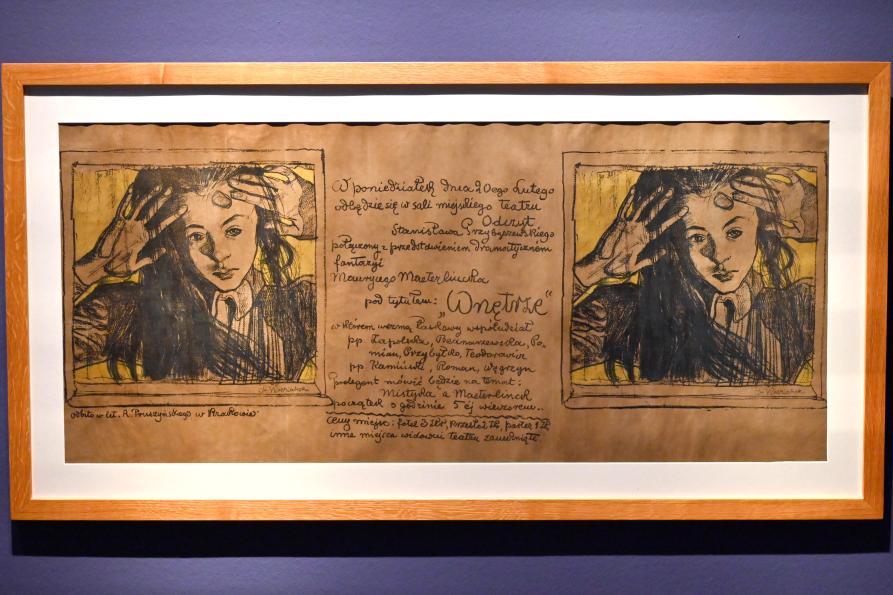 W poniedziałek dnia 20ego Lutego
odbędzie się w sali miejskiego teatru
Odczyt
Stanisława Przybyszewskiego
połączony z przedstawieniem dramatycznem
fantazyi
Maurycego Maeterlincka
pod tytułem: „Wnętrze“
w którem wezmą łaskawy współudział
pp. Zapolska, Bednarzewska, Po-
mian, Przybyłko, Teodorowicz
pp. Kamiński, Roman, Węgrzyn
Prelegent mówić będzie na temat:
Mistyka a Maeterlinck
Początek o godzinie 5ej wieczorem..
Ceny miejsc: fotel 3 złr, krzesło 2 złr, parter 1 zł
inne miejsca widowni teatru zamknięte
St. Wyspiański
St. Wyspiański
odbito w lit. A. Pruszyńskiego w Krakowie